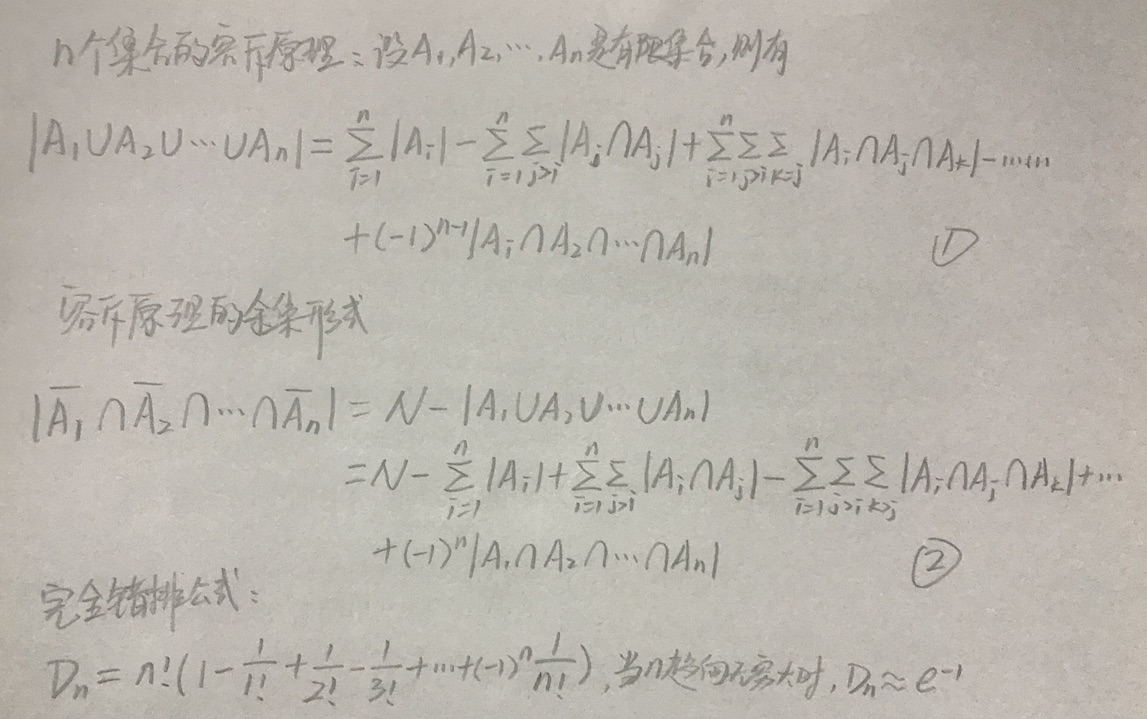 n个集合的容斥原理:设A₁,A₂,…,Aₙ是有限集合,则有
|A₁∪A₂∪…∪Aₙ|=∑_{i=1}^{n}|Aᵢ|-∑_{i=1}^{n}∑_{j>i}|Aⱼ∩Aⱼ|+∑_{i=1}^{n}∑_{j>i}∑_{k=j}|Aᵢ∩Aⱼ∩Aₖ|-……
+(-1)ⁿ⁻¹|Aᵢ∩A₂∩…∩Aₙ| ①
容斥原理的余集形式
|A̅₁∩A̅₂∩…∩A̅ₙ|=N-|A₁∪A₂∪…∪Aₙ|
=N-∑_{i=1}^{n}|Aᵢ|+∑_{i=1}^{n}∑_{j>i}|Aᵢ∩Aⱼ|-∑_{i=1}^{n}∑_{j>i}∑_{k>j}|Aᵢ∩Aⱼ∩Aₖ|+…
+(-1)ⁿ|A₁∩A₂∩…∩Aₙ| ②
完全错排公式:
Dₙ=n!(1-1/1!+1/2!-1/3!+…+(-1)ⁿ1/n!),当n趋向无穷大时,Dₙ≈e⁻¹